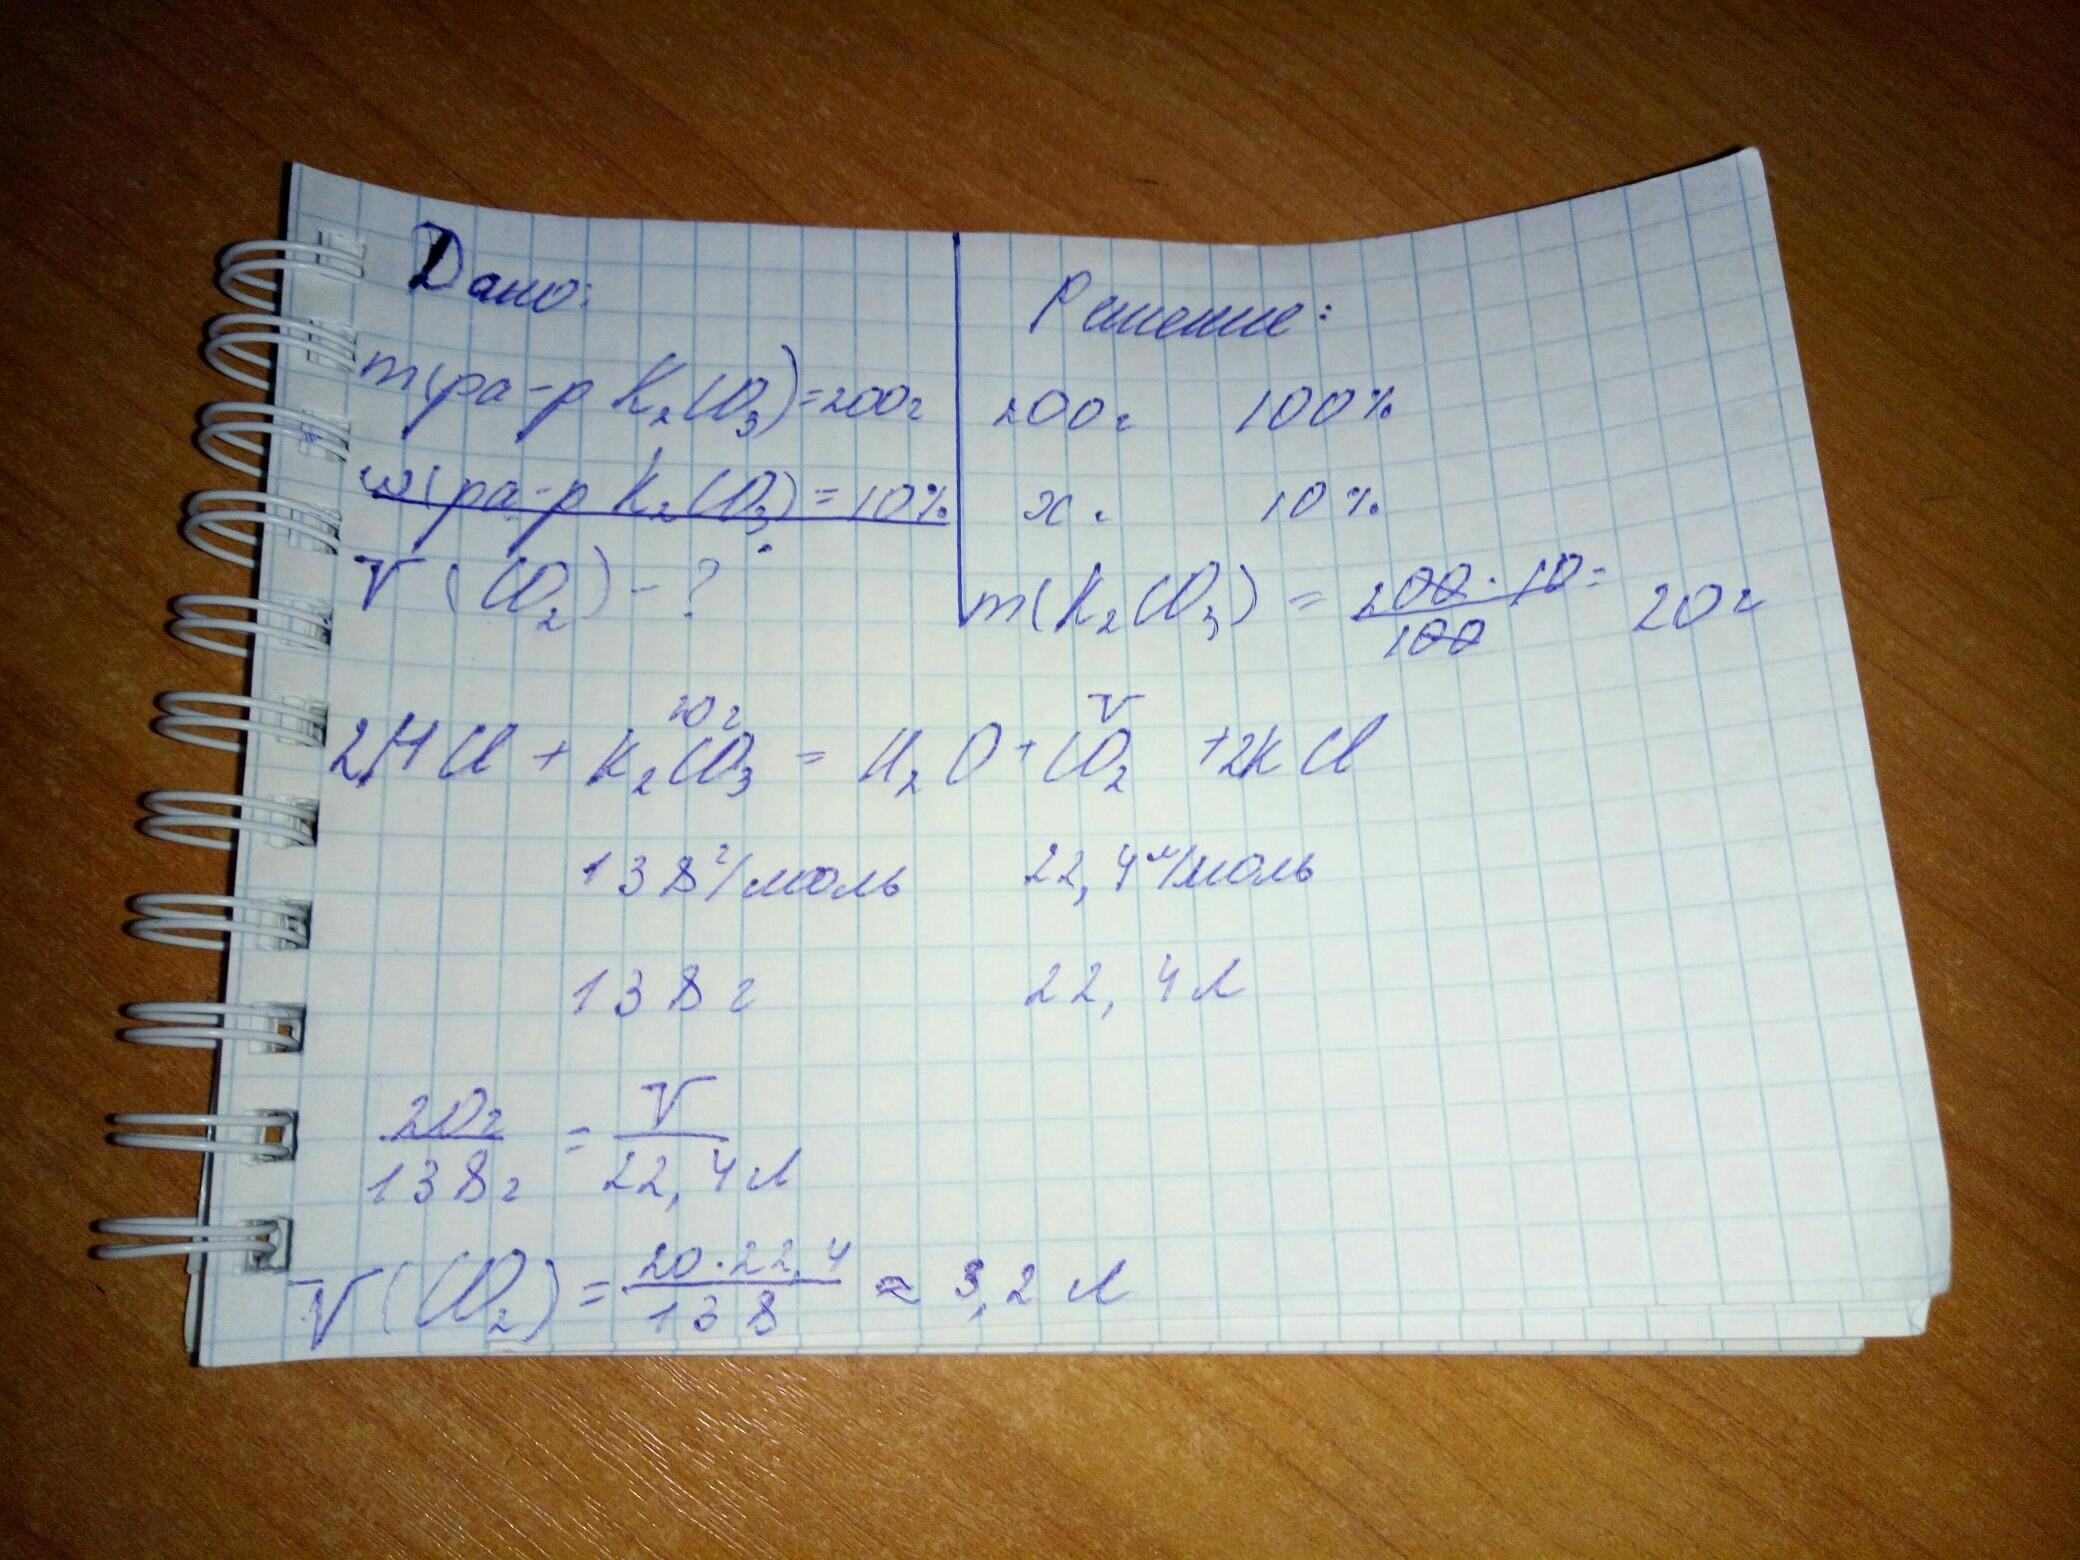 Дано:
m(ра-р K₂CO₃)=200г
w(ра-р K₂CO₃)=10%
V(CO₂)-?
Решение:
200г 100%
x. 10%
m(K₂CO₃) = 200·10/100 = 20г
20г V
2HCl + K₂CO₃ = H₂O + CO₂ + 2KCl
138г/моль 22,4л/моль
138г 22,4л
20г/138г = V/22,4л
V(CO₂) = 20·22,4/138 ≈ 3,2л